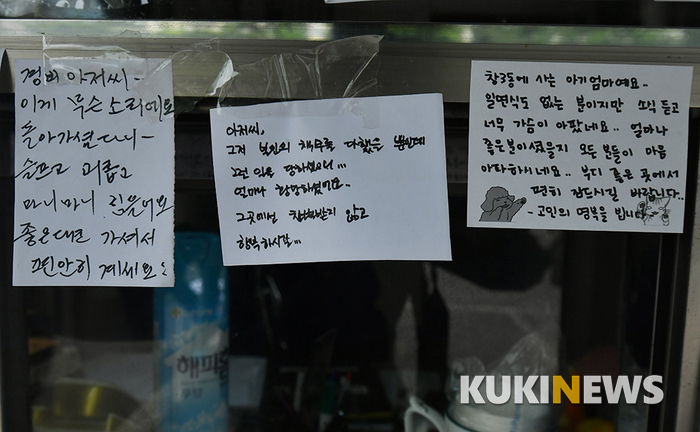 경비 아저씨-
이게 무슨 소리에요
돌아가셨다니-
슬프고 괴롭고
마니마니 힘들어요
좋은데로 가셔서
편안히 계세요!
아저씨,
그저 본인의 책무를 다했을 뿐인데
그런 일을 당하셨으니...
얼마나 황망하셨을까요..
그곳에선 차별받지 않고
행복하시길...
창3동에 사는 아기엄마예요..
일면식도 없는 분이지만 소식 듣고
너무 가슴이 아팠네요.. 얼마나
좋은분이셨을지 모든 분들이 마음
아파하시네요.. 부디 좋은 곳에서
편히 잠드시길 바랍니다..
- 고인의 명복을 빕니다
해피홈
KUKINEWS